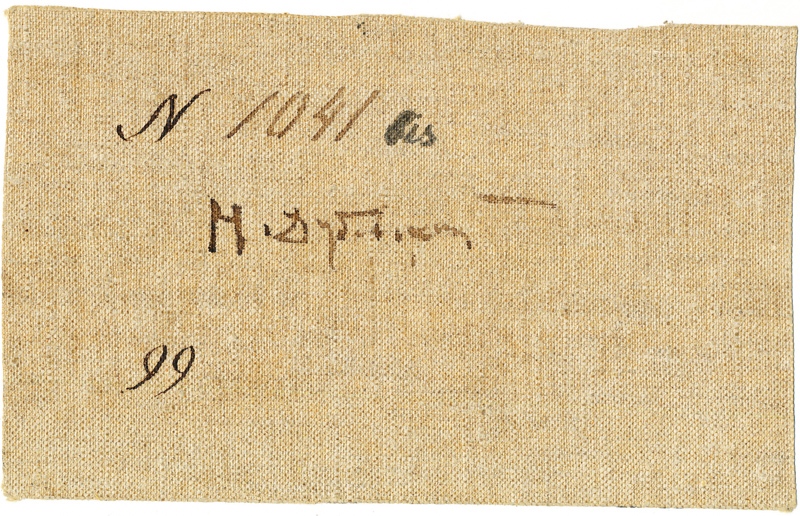 N 1041 bis
Н. Дубовской
99